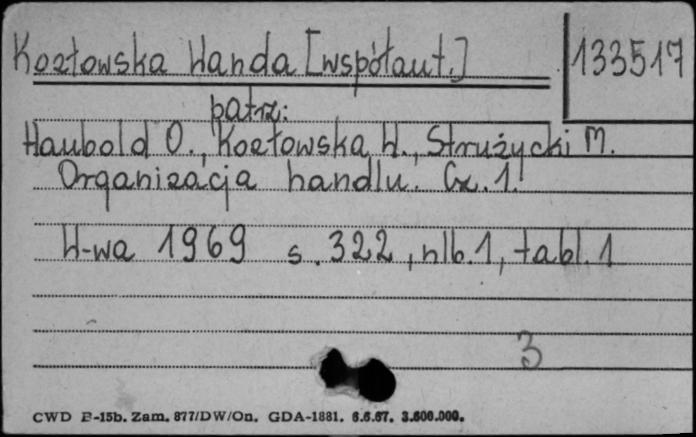 Kozłowska Wanda [współaut.]
133517
patrz:
Haubold O., Kozłowska W., Strużycki M.
Organizacja handlu. Cz. 1.
W-wa 1969 s. 322, nlb. 1, tabl. 1
3
CWD B-15b. Zam. 877/DW/On. GDA-1881. 6.6.67. 3.600.000.